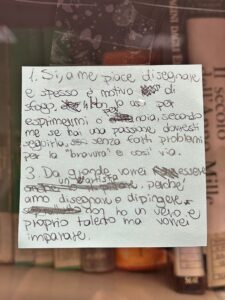 1. Sì, a me piace disegnare
e spesso è motivo di
sfogo, non lo uso per
esprimermi o noia, secondo
me se hai una passione dovresti
seguirla, senza farti problemi
per la "bravura" e così via.
3. Da grande vorrei essere
un'artista, perché
amo disegnare e dipingere,
non ho un vero e
proprio talento ma vorrei
imparare.
Il secolo
Mille